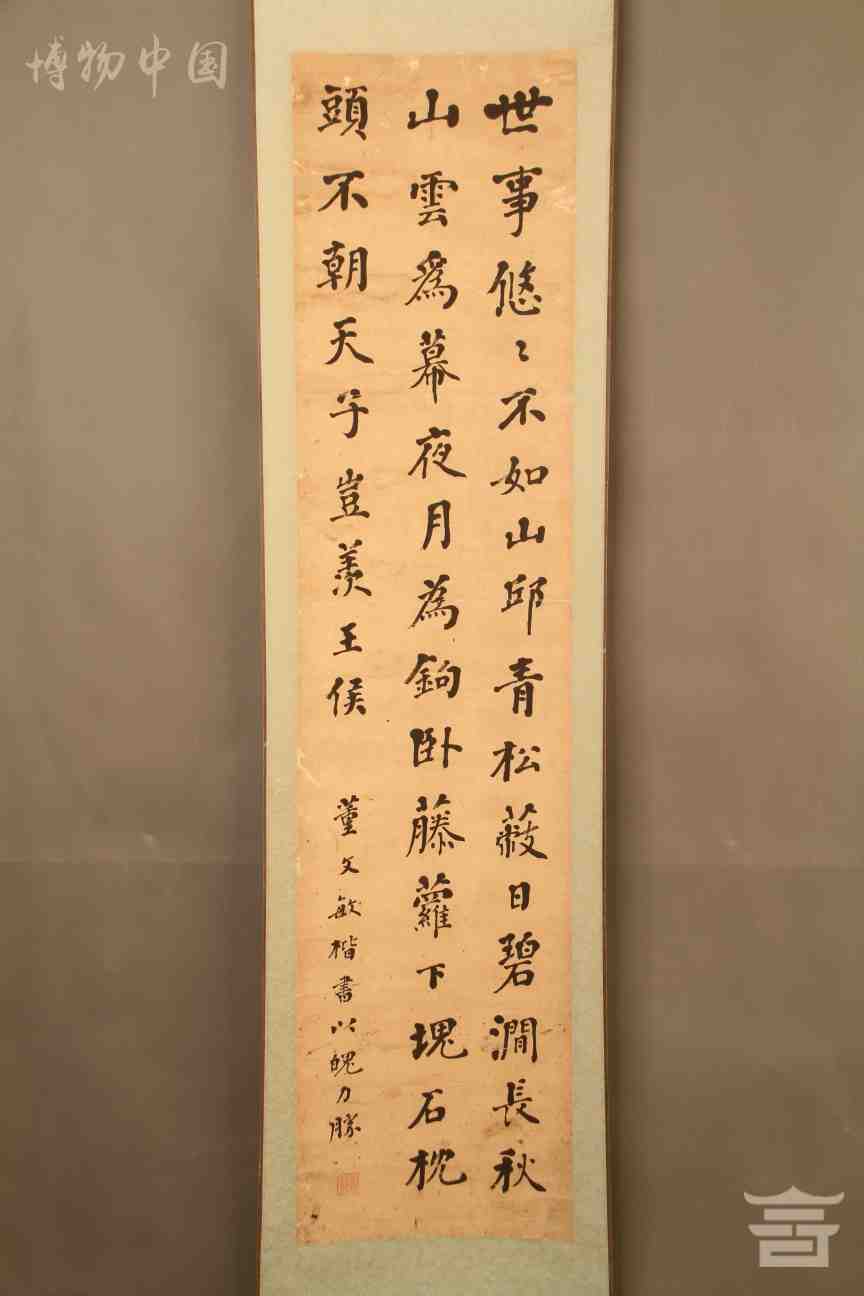 博物中国
世事悠〻不如山邱青松蔽日碧澗長秋
山雲為幕夜月為鉤臥藤蘿下塊石枕
頭不朝天子豈羨王侯
董文敏楷書以魄力勝